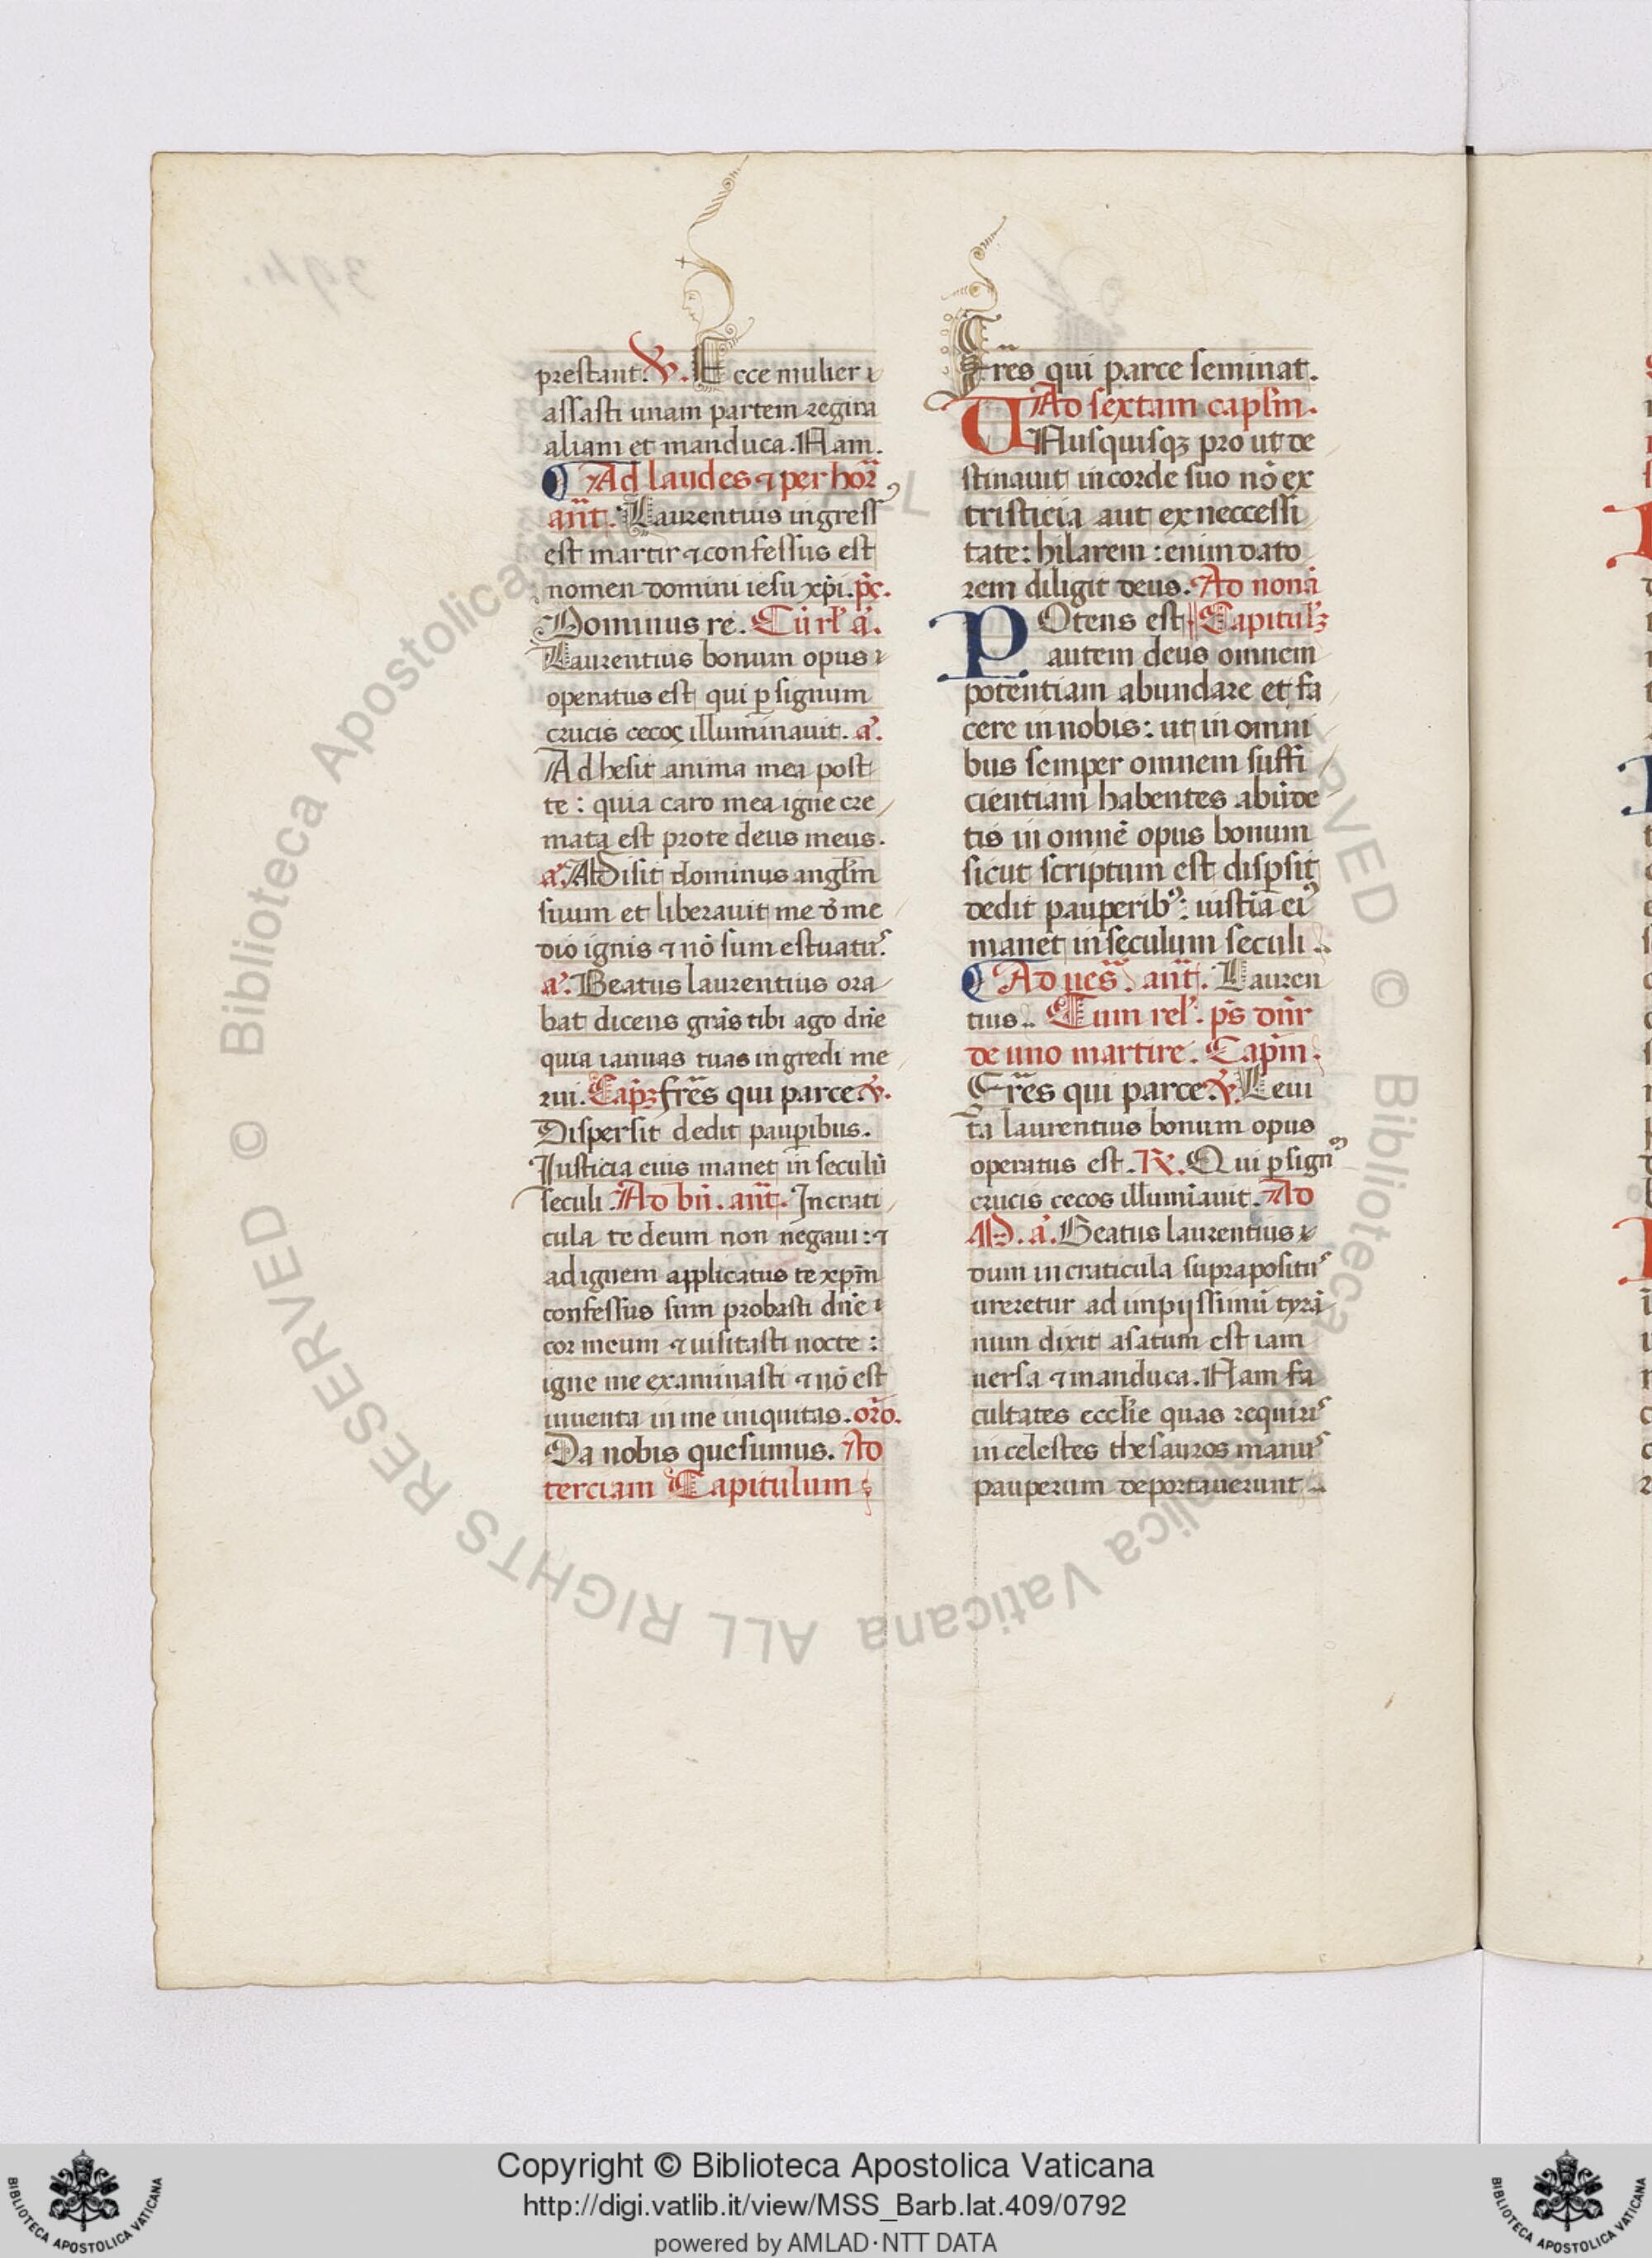 prestant. ℣. Ecce miulier
assasti unam partem regira
aliam et manduca. Nam.
Ad laudes ⁊ per hor̄
an̄t. Laurentius ingress⁹
est martir ⁊ confessus est
nomen domini iesu xp̄i. p̄s.
Dominus re. Cū rl̓ a͛.
Laurentius bonum opus
operatus est qui ꝑ signum
crucis cecos illuminauit. a͛.
Adhesit anima mea post
te : quia caro mea igne cre
mata est pro te deus meus.
a͛. Misit dominus angl̄m
suum et liberauit me de me
dio ignis ⁊ nō sum estuatu᷒
a͛. Beatus laurentius ora
bat dicens grās tibi ago dn̄e
quia ianuas tuas ingredi me
rui. Cap̄ꝫ frēs qui parce ℣.
Dispersit dedit pauꝑibus.
Iusticia euis manet in seculū
seculi. Ad bn̄. an̄t. In crati
cula te deum non negaui : ⁊
ad ignem applicatus te xp̄m
confessus sum probasti dn̄e
cor meum ⁊ uisitasti nocte :
igne me examinasti ⁊ nō est
inuenta in me iniquitas. or̄o.
Da nobis quesumus. Ad
terciam Capitulum
Frēs qui parce seminat.
Ad sextam capl̄m.
UNusquisqꝫ pro ut de
stinauit in corde suo nō ex
tristicia aut ex neccessi
tate : hilarem : enim dato
rem diligit deus. Ad nonā
POtens est Capitulꝫ
autem deus omnem
potentiam abundare et fa
cere in nobis : ut in omni
bus semper omnem suffi
cientiam habentes abūde
tis in omnē opus bonum
sicut scriptum est disꝑsit
dedit pauperib⁹ : iustiā ei⁹
manet in seculum seculi.
Ad ues̄. an̄t. Lauren
tius. Cum rel̓. p̄s dn̄r
de uno martire. Cap̄m.
Frēs qui parce. ℣. Leui
ta laurentius bonum opus
operatus est. ℟. Qui ꝑ sign
crucis cecos illumīauit. Ad
M. a͛. Beatus laurentius
dum in craticula suprapositu᷒
ureretur ad impijssimū tyrā
num dixit asatum est iam
uersa ⁊ manduca. Nam fa
cultates eccl̄ie quas requiri᷒
in celestes thesauros manu᷒
pauperum deportauerunt
Copyright © Biblioteca Apostolica Vaticana
http://digi.vatlib.it/view/MSS_Barb.lat.409/0792
powered by AMLAD·NTT DATA
BIBLIOTECA APOSTOLICA VATICANA
BIBLIOTECA APOSTOLICA VATICANA
© Biblioteca Apostolica Vaticana ALL RIGHTS RESERVED